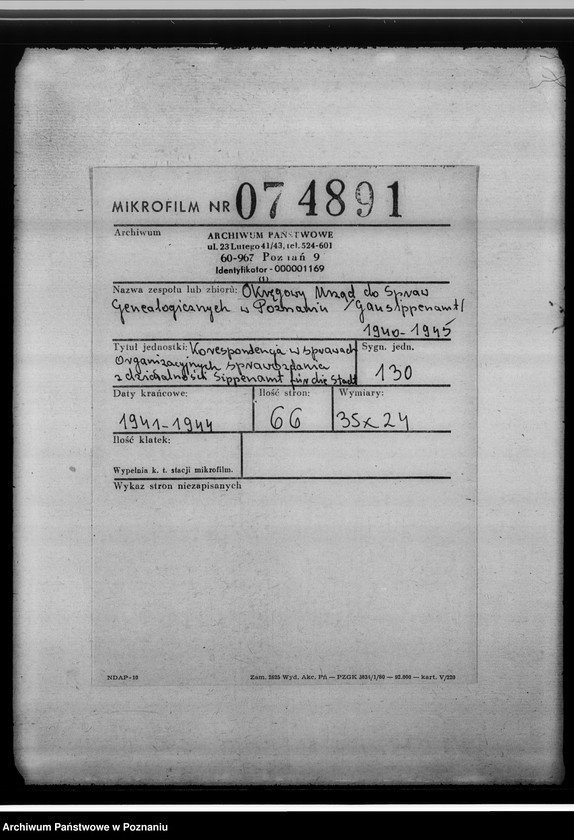 MIKROFILM NR 074891
Archiwum
ARCHIWUM PAŃSTWOWE
ul. 23 Lutego 41/43, tel. 524-601
60-967 Poznań 9
Identyfikator - 000001169
(1)
Nazwa zespołu lub zbioru: Okręgowy Urząd do Spraw
Genealogicznych w Poznaniu /Gausippenamt/
1940-1945
Tytuł jednostki: Korespondencja w sprawach
Organizacyjnych sprawozdania
z działalności Sippenamt für die Stadt
Sygn. jedn.
130
Daty krańcowe:
1941-1944
Ilość stron:
66
Wymiary:
35x24
Ilość klatek:
Wypełnia k. t. stacji mikrofilm.
Wykaz stron niezapisanych
NDAP-10
Zam. 2625 Wyd. Akc. Pń — PZGK 3834/1/80 — 92.000 — kart. V/220
Archiwum Państwowe w Poznaniu